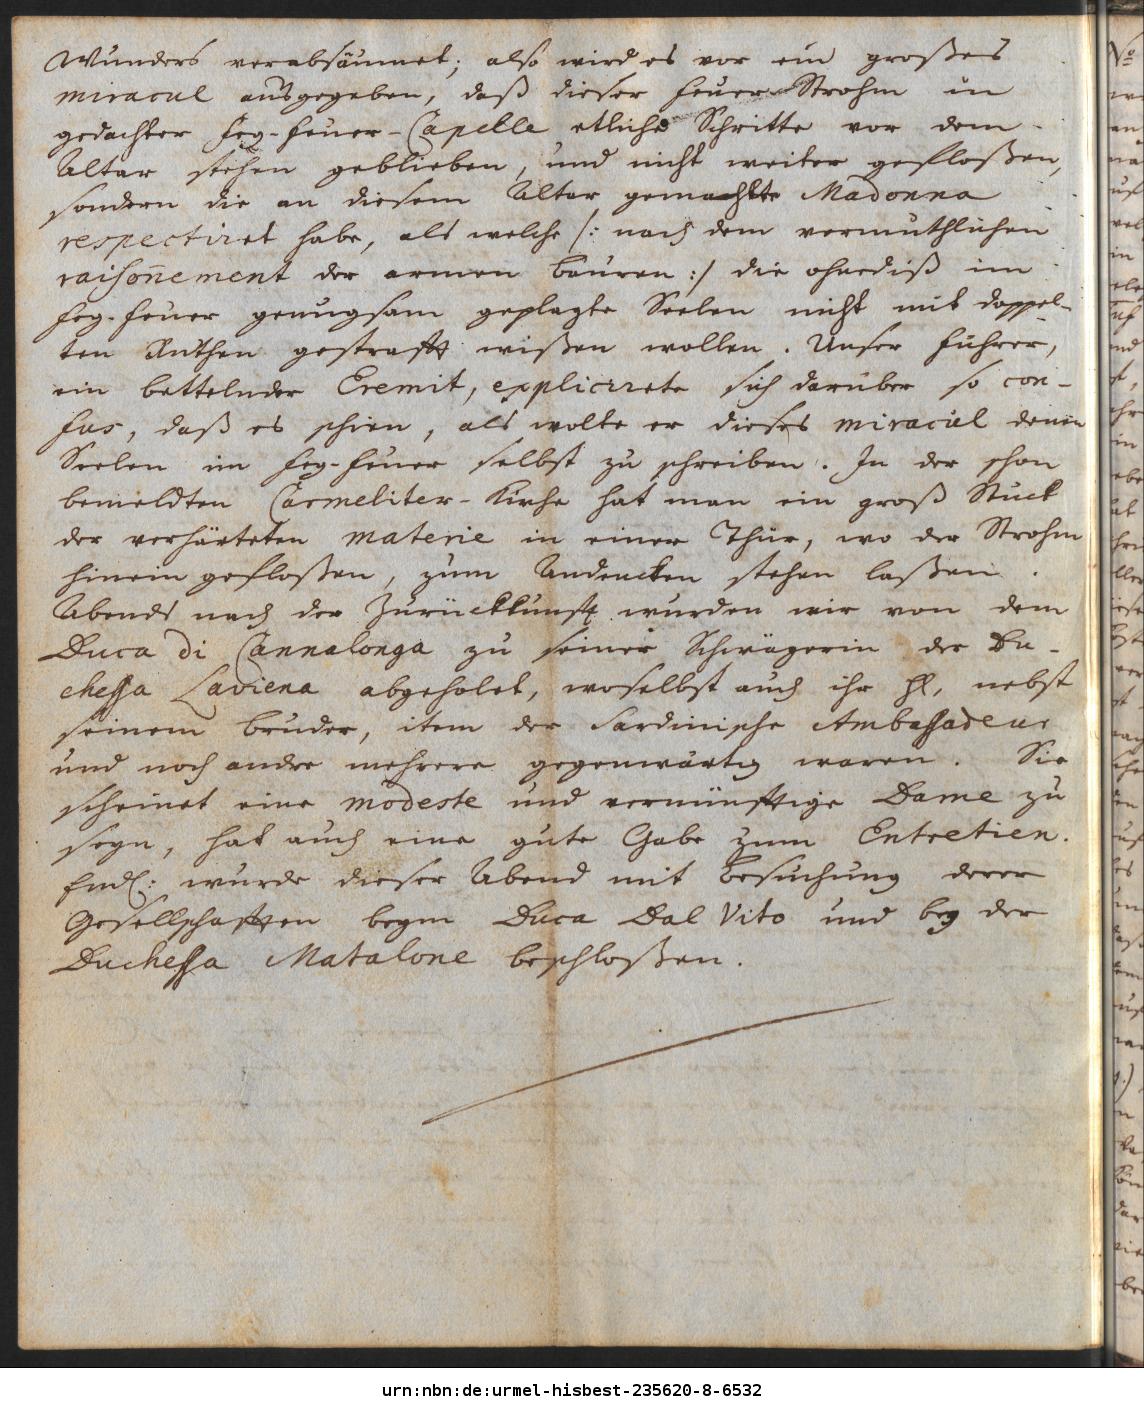 Wunders verabsäumet; also wird es vor ein großes
miracul ausgegeben, daß dieser Feuer-Strohm in
gedachter Feg-Feuer-Capelle etliche Schritte vor dem
Altar stehen geblieben, und nicht weiter gefloßen,
sondern die an diesem Altar gemachte Madonna
respectiret habe, als welche /: nach dem vermuthlichen
raisoñement der armen Bauren :/ die ohnediß im
Feg-Feuer genugsam geplagte Seelen nicht mit doppel-
ten Ruthen gestrafft wißen wollen. Unser Führer,
ein bettelnder Eremit, explicirete sich darüber so con-
fus, daß es schien, als wolte er dieses miracul denen
Seelen im Feg-Feuer selbst zu schreiben. In der schon
bemeldten Carmeliter-Kirche hat man ein groß Stück
der verhärteten materie in einer Thür, wo der Strohm
hinein gefloßen, zum Andencken stehen laßen.
Abends nach der Zurückkunfft wurden wir von dem
Duca di Cannalonga zu seiner Schwägerin der Du-
chessa Laviena abgeholet, woselbst auch ihr , nebst
seinem Bruder, item der Sardinische Ambassadeur
und noch andre mehrere gegenwärtig waren. Sie
scheinet eine modeste und vernünfftige Dame zu
seyn, hat auch eine gute Gabe zum Entretien.
Endl: wurde dieser Abend mit Besuchung derer
Gesellschafften beym Duca Dal Vito und bey der
Duchessa Matalone beschloßen.
urn:nbn:de:urmel-hisbest-235620-8-6532